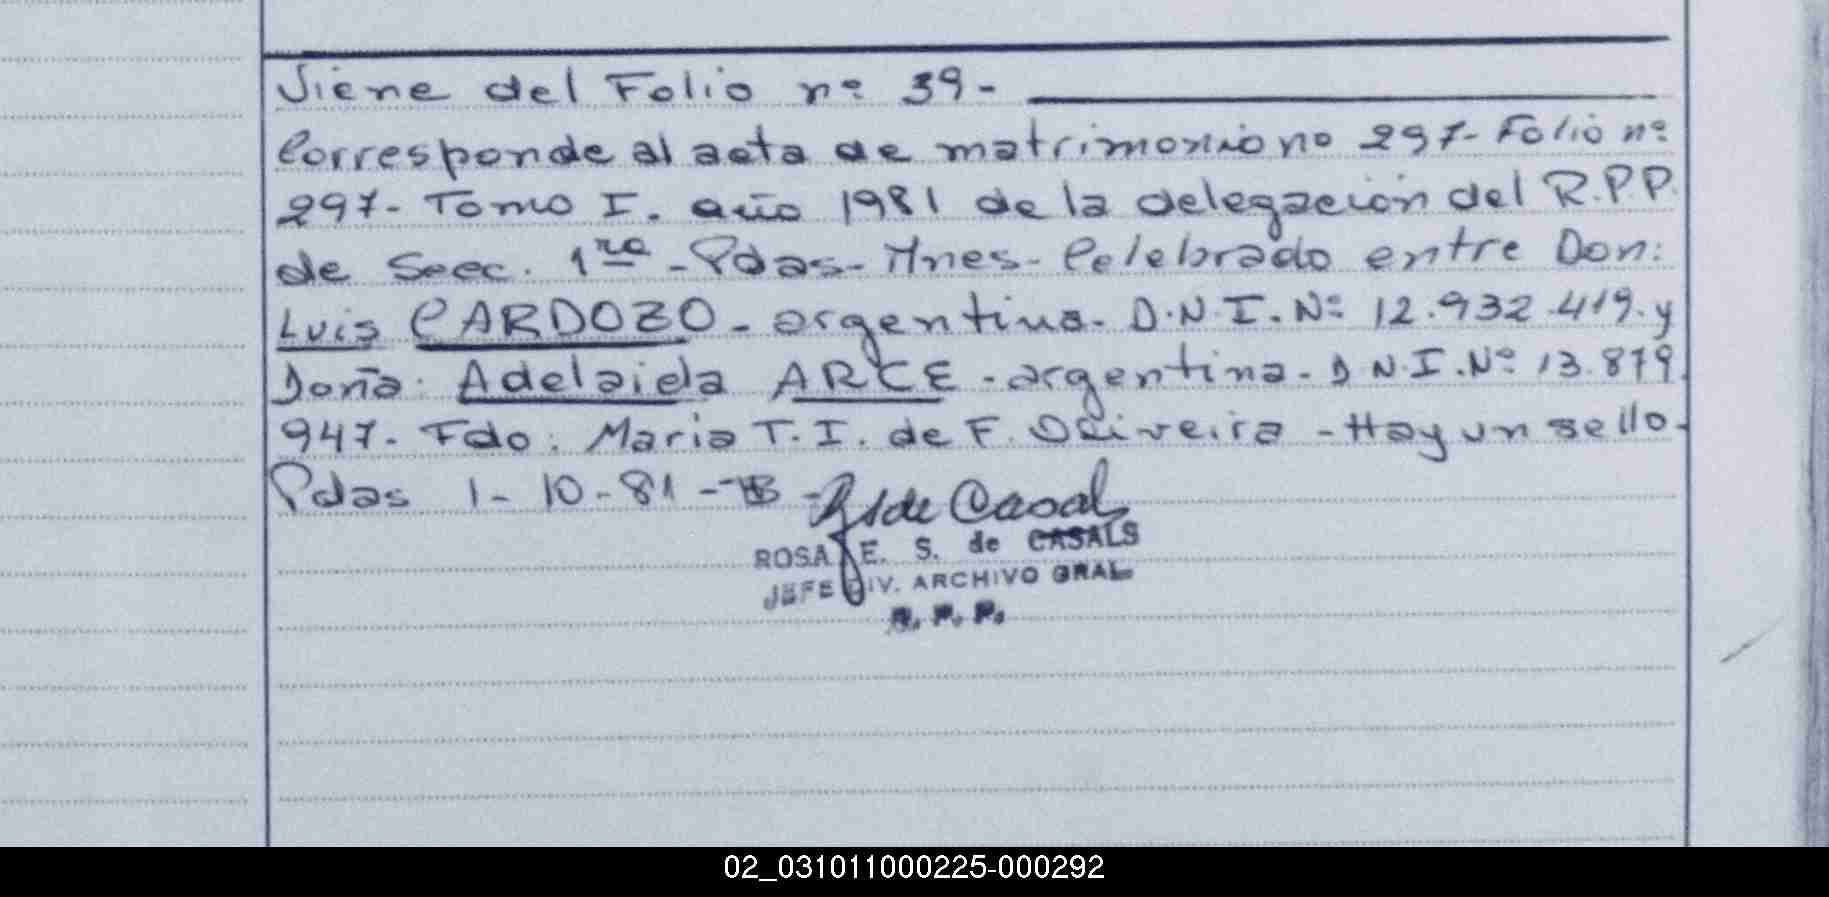 Viene del Folio nº 39-
Corresponde al acta de matrimonio nº 297- Folio nº
297- Tomo I. año 1981 de la delegación del R.P.P.
de Secc. 1ra - Pdas- Mnes- Celebrado entre Don:
Luis CARDOZO - argentino- D.N.I. Nº 12.932.419. y
Doña: Adelaida ARCE - argentina- D.N.I. Nº 13.879.
947- Fdo: Maria T. I. de F. Oliveira - Hay un sello-
Pdas 1-10-81-
ROSA E. S. de CASALS
JEFE DIV. ARCHIVO GRAL
R. P. P.
02_031011000225-000292